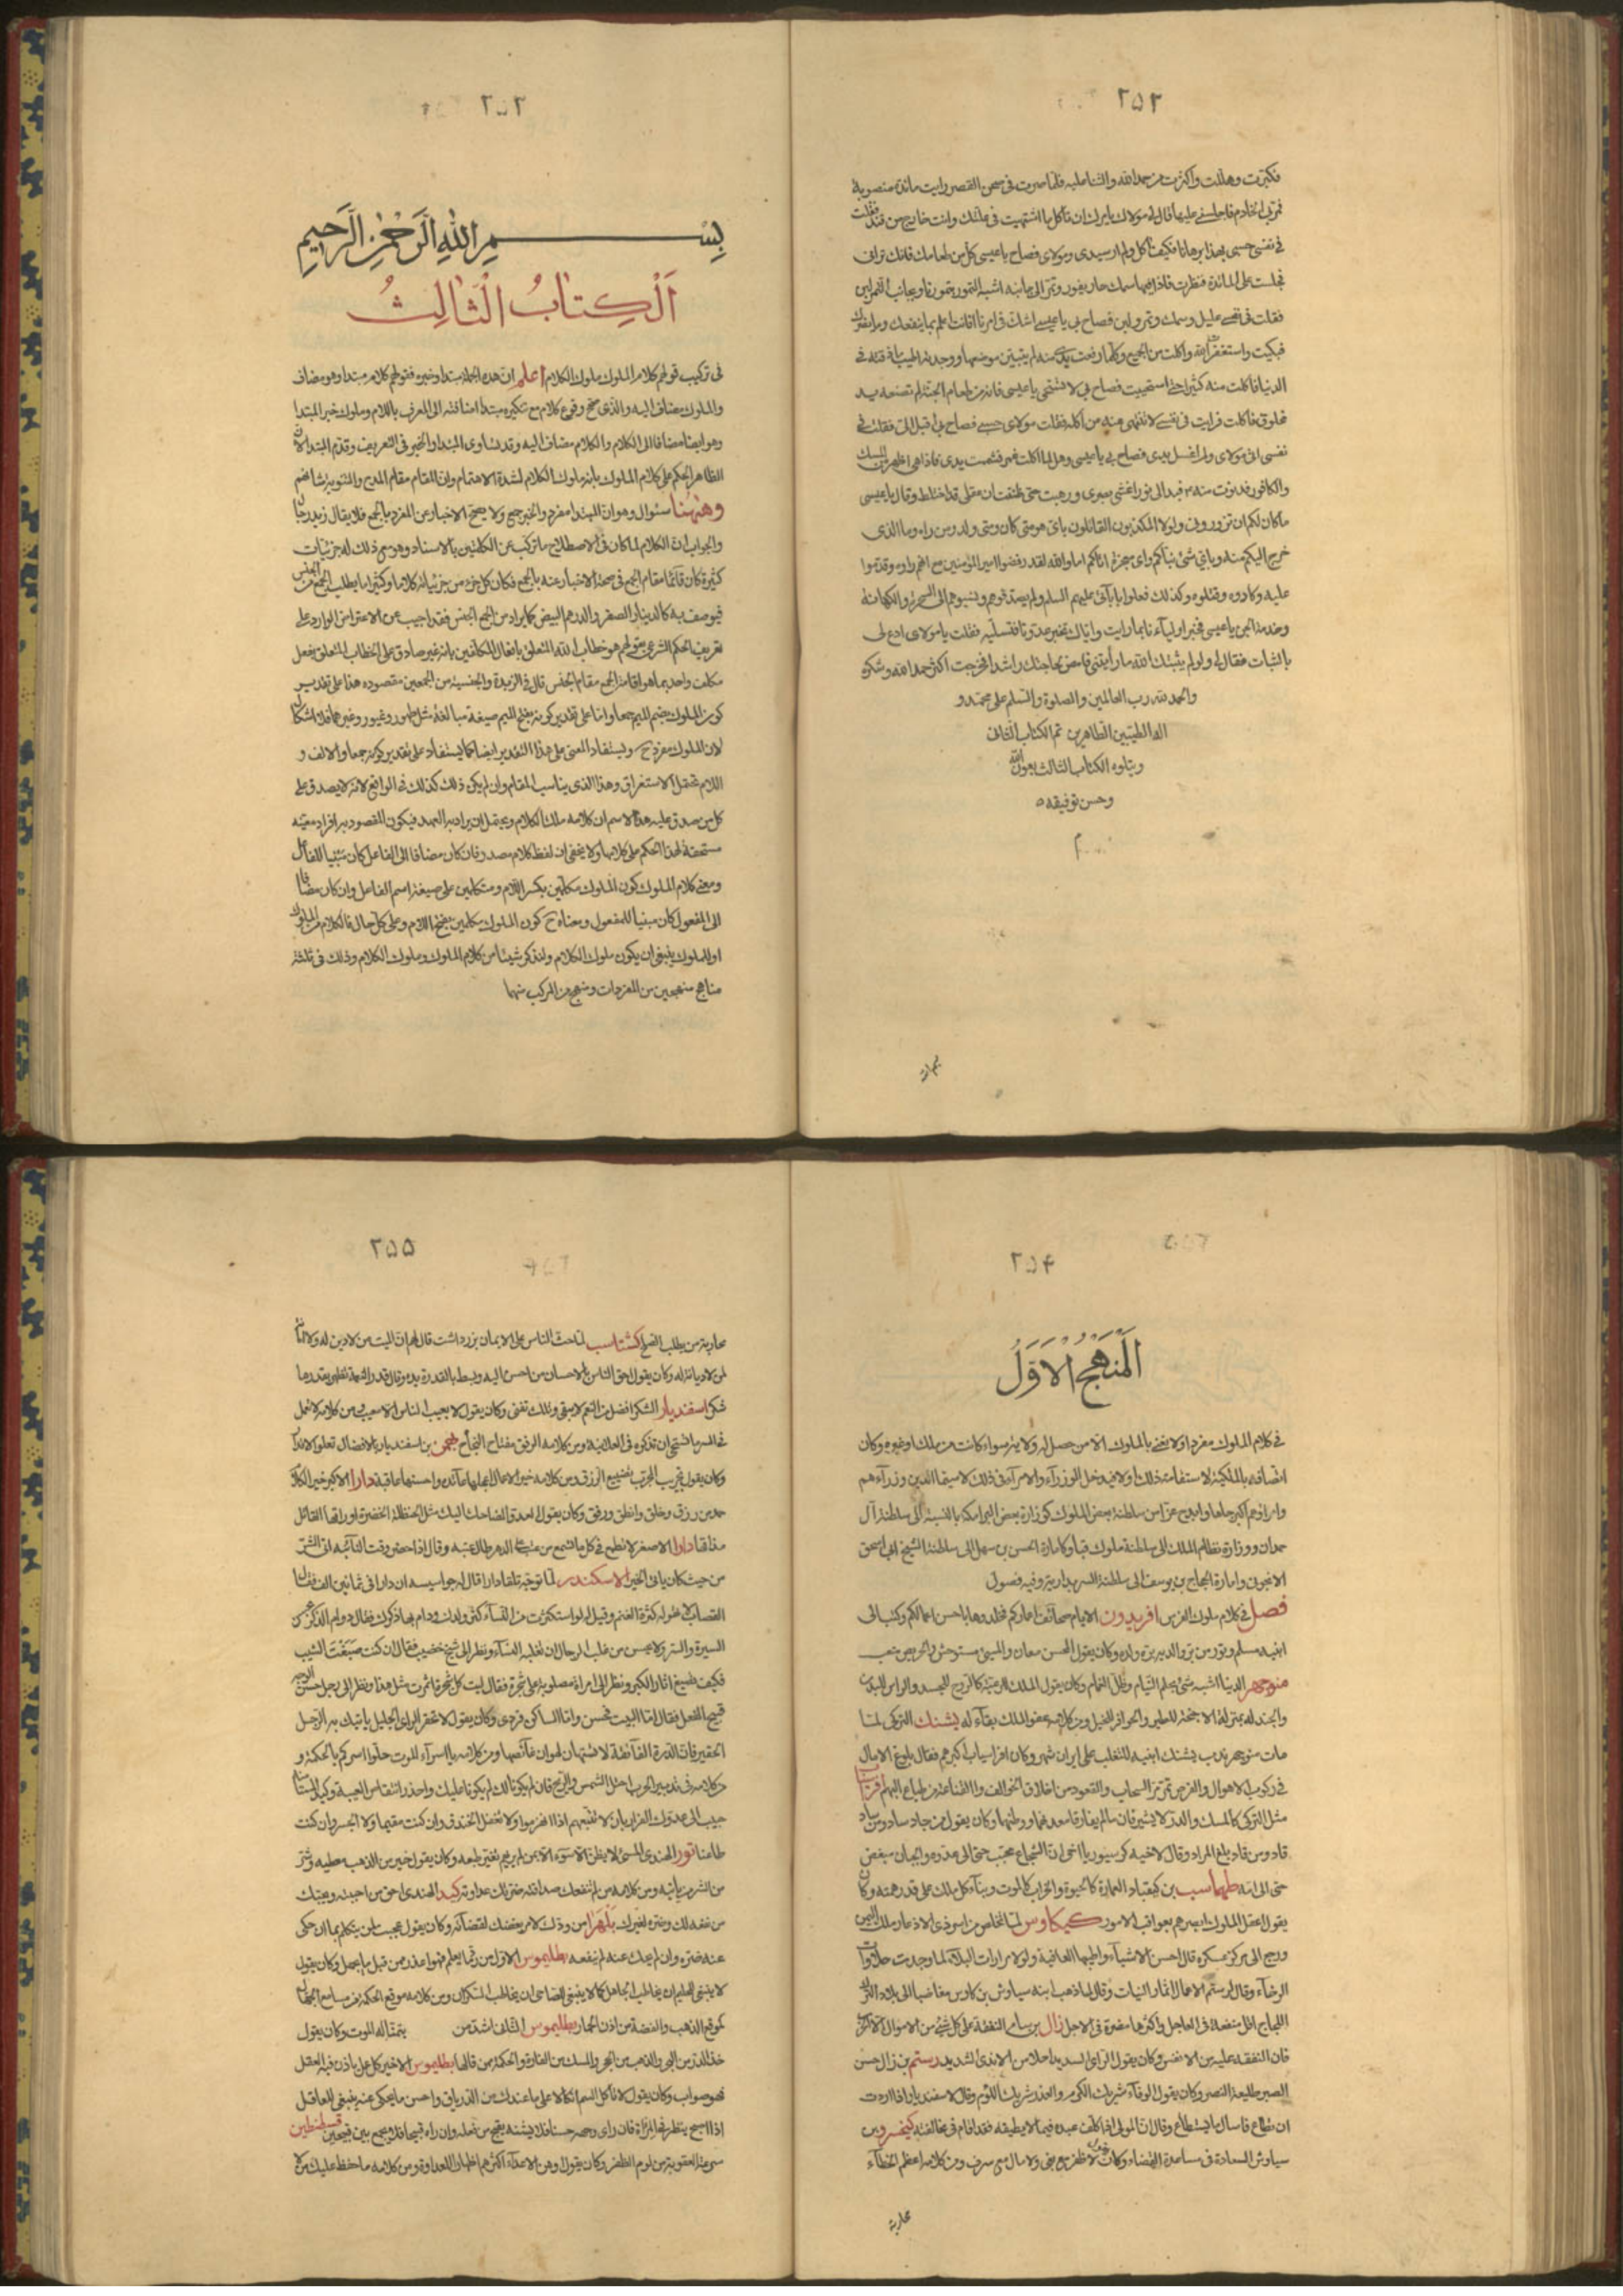 ۲۵۲
فكبرت وهللت واكثرت من حمد الله والثناء عليه فلما صرت فى صحن القصر رايت مائدة منصوبة
فمر بى الخادم فاجلسنى عليها وقال لى مولاك يامرك ان تاكل ما اشتهيت فى علتك وانت خارج من فيد فقلت
فى نفسى حسبى بهذا برهانا فكيف اكل ولم ار سيدى ومولاى فصاح يا عيسى كل من طعامك فانك ترانى
فجلست على المائدة فنظرت فاذا فيها سمك حار يفور وتمر الى جانبه اشبه التمور بتمورنا وبجانب التمر لبن
فقلت فى نفسى عليل وسمك وتمر ولبن فصاح بى يا عيسى اتشك فى امرنا افانت اعلم بما ينفعك وما يضرك
فبكيت واستغفرت الله واكلت من الجميع وكلما رفعت يدى منه لم يتبين موضعها ووجدته اطيب ما ذقته فى
الدنيا فاكلت منه كثيرا حتى استحييت فصاح بى لا تستحى يا عيسى فانه من طعام الجنة لم تصنعه يد
مخلوق فاكلت فرايت فى نفسى لا تنتهى عنه من اكله فقلت مولاى حسبى فصاح بى اقبل الى فقلت فى
نفسى اتى مولاى ولم اغسل يدى فصاح بى يا عيسى وهل لما اكلت غمر فشممت يدى فاذا هى اعطر من المسك
والكافور فدنوت منه فبدا لى نور اغشى بصرى ورهبت حتى ظننت ان عقلى قد اختلط وقال يا عيسى
ما كان لكم ان تزورونى ولولا المكذبون القائلون باى هو متى كان ومتى ولد ومن راه وما الذى
خرج اليكم منه وباى شئ نبأكم واى معجزة اتاكم اما والله لقد رفضوا امير المؤمنين مع انهم راوه وقدموا
عليه وكادوه وقتلوه وكذلك فعلوا بابائى عليهم السلم ولم يصدقوهم ونسبوهم الى السحر والكهانة
وخدمة الجن يا عيسى فخبر اولياءنا بما رايت واياك تخبر عدونا فتسلبه فقلت يا مولاى ادع لى
بالثبات فقال لى ولو لم يثبتك الله ما رأيتنى فامض بحاجتك راشدا فخرجت اكثر حمد الله وشكره
والحمد لله رب العالمين والصلوة والسلم على محمد و
اله الطيبين الطاهرين تم الكتاب الثانى
ويتلوه الكتاب الثالث بعون الله
وحسن توفيقه
۲۵۳
بسم الله الرحمن الرحيم
الكتاب الثالث
فى تركيب قولهم كلام الملوك ملوك الكلام اعلم ان هذه الجملة مبتدا وخبر فقولهم كلام مبتدا وهو مضاف
والملوك مضاف اليه والذى صحح وقوع كلام مع تنكيره مبتدأ اضافته الى المعرف باللام وملوك خبر المبتدا
وهو ايضا مضاف الى الكلام والكلام مضاف اليه وقد تساوى المبتدا والخبر فى التعريف وقدم المبتدا لان
الظاهر الحكم على كلام الملوك بانه ملوك الكلام لشدة الاهتمام وان المقام مقام المدح والتنويه بشانهم
وههنا سئوال وهو ان المبتدا مفرد والخبر جمع ولا يصح الاخبار عن المفرد بالجمع فلا يقال زيد رجال
والجواب ان الكلام لما كان فى الاصطلاح ما تركب من الكلمتين بالاسناد وهو مع ذلك له جزئيات
كثيرة كان قائما مقام الجمع فى صحة الاخبار عنه بالجمع فكان كل جزء من جزئياته كلاما وكثيرا ما يطلب الجمع من الجنس
فيوصف به كالدينار الصفر والدرهم البيض كما يراد من الجمع الجنس فقد اجيب عن الاعتراض الوارد على
تعريف الحكم الشرعى بقولهم هو خطاب الله المتعلق بافعال المكلفين بانه غير صادق على الخطاب المتعلق بفعل
مكلف واحد بما هو اقامة الجمع مقام الجنس قال فى الزبدة والجنسية من الجمعين مقصوده هذا على تقدير
كون الملوك بضم الميم جمعا واما على تقدير كونه بفتح الميم صيغة مبالغة مثل طهور وغيور وغيرهما فلا اشكال
لان الملوك مفرد ح ويستفاد المعنى على هذا التقدير ايضا كما يستفاد على تقدير كونه جمعا والالف و
اللام تحتمل الاستغراق وهذا الذى يناسب المقام وان لم يكن ذلك كذلك فى الواقع لانه لا يصدق على
كل من صدق عليه هذا الاسم ان كلامه ملك الكلام ويحتمل ان يراد به العهد فيكون المقصود به افراد معينة
مستحقة لهذا الحكم على كلامها ولا يخفى ان لفظ كلام مصدر فان كان مضافا الى الفاعل كان مبنيا للفاعل
ومعنى كلام الملوك كون الملوك مكلمين بكسر اللام ومتكلمين على صيغة اسم الفاعل وان كان مضافا
الى المفعول كان مبنيا للمفعول ومعناه ح كون الملوك مكلمين بفتح اللام وعلى كل حال فالكلام من الملوك
او للملوك ينبغى ان يكون ملوك الكلام ولنذكر شيئا من كلام الملوك وملوك الكلام وذلك فى ثلثة
مناهج منهجين من المفردات ومنهج من المركب منهما
۲۵۴
المنهج الاول
فى كلام الملوك مفردا ولا نعنى بالملوك الا من حصل له ولاية سواء كانت من ملك او غيره وكان
اتصافه بالملكية لاستفامته ذلك اولا فيدخل الوزراء والامراء فى ذلك لا سيما الذين وزراءهم
وامراؤهم اكبر جاها واوضح عزا من سلطنة بعض الملوك كوزارة بعض البرامكة بالنسبة الى سلطنة آل
حمدان ووزارة نظام الملك الى سلطنة ملوك قبا وكامارة الحسن بن سهل الى سلطنة الشيخ ابى اسحق
الانجوى وامارة الحجاج بن يوسف الى سلطنة السربدارية وفيه فصول
فصل فى كلام ملوك الفرس افريدون الايام صحائف اعماركم فخلدوها باحسن اعمالكم وكتب الى
ابنيه سلم وتور من بر والديه بره ولده وكان يقول المحسن معان والمسيئ مستوحش والحريص تعب
منوچهر الدنيا اشبه شئ بحلم النيام وظل الغمام وكان يقول الملك للرعية كالروح للجسد والراس للبدن
والجند له بمنزلة الاجنحة للطير والحوافر للخيل ومن كلامه عفو الملك بقاء له پشنك التركى لما
مات منوچهر ندب پشنك ابنيه للتغلب على ايران شهر وكان افراسياب اكبرهم فقال بلوغ الامال
فى ركوب الاهوال والفرص تمر مر السحاب والقعود من اخلاق الخوالف والقناعة من طباع البهائم افراسياب
مثل التركى كالمسك والدر لا يشرفان ما لم يفارقا معدنهما ووطنهما وكان يقول من جاد ساد ومن ساد
قاد ومن قاد بلغ المراد وقال لاخيه كرسيوز يا اخى ان الشجاع محبب حتى الى عدوه والجبان مبغض
حتى الى امه طهماسب بن كيقباد العمارة كالحيوة والخراب كالموت وبناء كل ملك على قدر همته وكان
يقول اعقل الملوك ابصرهم بعواقب الامور كيكاوس لما تخلص من اسر ذى الاذعار ملك اليمن
ورجع الى مركز عسكره قال احسن الاشياء واطيبها العافية ولولا مرارات البلاء لما وجدت حلاوات
الرخاء وقال لرستم الاعمال اثمار النيات وقال لما ذهب ابنه سياوش بن كاوس مغاضبا الى بلاد الترك
اللجاج اقل منفعة فى العاجل واكثرها مضرة فى الاجل زال بن سام النفقة على كل شئ من الاموال الا الحرب
فان النفقة عليه من الانفس وكان يقول الراى السديد احلا من الايدى الشديد رستم بن زال حسن
الصبر طليعة النصر وكان يقول الوفاء شريك الكرم والغدر شريك اللؤم وقال لاسفنديار اذا اردت
ان تطاع فاسال ما يستطاع وقال ان المولى اذا كلف عبده فيما لا يطيقه فقد اقام فى مخالفته كيخسرو بن
سياوش السعادة فى مساعدة القضاء وكان يقول لا ظفر مع بغى ولا مال مع سرف ومن كلامه اعظم الخطاء
محاربة
۲۵۵
محاربة من يطلب الصلح كشتاسب لما حث الناس على الايمان بزرداشت قال لهم ان الميت من لا دين له ولا امانة
لمن لا ديانة له وكان يقول احق الناس بالاحسان من احسن اليه وبسط بالقدرة يده وقال قدر النعمة تظهر بقدر ما
شكر اسفنديار الشكر افضل من النعم لانه يبقى وتلك تفنى وكان يقول لا يعيب الناس الا معيب ومن كلامه لا تعمل
فى السر ما تستحى ان تذكره فى العلانية ومن كلامه الرفق مفتاح النجاح بهمن بن اسفنديار بالافضال تعلو الاقدار
وكان يقول تجريب المجرب تضييع الرزق ومن كلامه خير الاعمال اعجلها عائدة واحسنها عاقبة دارا الاكبر خير الكلام
حمد من رزق وخلق وانطق ورفق وكان يقول العدو الضاحك اليك مثل الحنظلة الخضرة اوراقها القاتل
مذاقها دارا الاصغر لا تطمع فى كل ما تسمع من عتب على الدهر طال عتبه وقال اذا حضر وقت النائبة اتى الشر
من حيث كان ياتى الخير الاسكندر لما توجه تلقاء دارا قال له جواسيسه ان دارا فى ثمانين الف فقال
القصاب لا تهوله كثرة الغنم وقيل له لو استكثرت من النساء كثر ولدك ودام بهم ذكرك فقال دوام الذكر حسن
السيرة والسنن ولا يحسن من غلب الرجال ان تغلبه النساء ونظر الى شيخ خضيب فقال ان كنت صبغت الشيب
فكيف تصبغ اثار الكبر ونظر الى امراة مصلوبة على شجرة فقال ليت كل شجرة اثمرت مثل هذا ونظر الى رجل حسن الوجه
قبيح الفعل فقال اما البيت فحسن واما الساكن فردى وكان يقول لا تحقر الراى الجليل ياتيك به الرجل
الحقير فان الدرة الفائقة لا تستهان لهوان غائصها ومن كلامه يا اسراء الموت حلوا اسركم بالحكمة و
من كلامه فى تدبير الحرب
حبب الى عدوك الفرار بان لا تتبعهم اذا انهزموا ولا تغفل الخندق وان كنت مقيما ولا الجسر وان كنت
ظاعنا فور الهندى المسئ لا يظن الا سوء الامن
من الشر من ياتيه ومن كلامه من لم تنفعك صداقته ضرتك عداوته كيد الهندى احق من احببته
من نفعه لك وضره لغيرك بلهرا من وذلك لامر يبغضك لقضائه وكان يقول عجبت لمن يتكلم بما ان حكى
عنه ضره وان لم يحك عنه لم ينفعه بطليموس الاول من رقى ما يعلم فهو اعذر من قبل ما يجهل وكان يقول
لا ينبغى للعليم ان يخاطب الجاهل كما لا ينبغى للصاحى ان يخاطب السكران ومن كلامه موقع الحكمة من مسامع الجهال
كموقع الذهب والفضة من اذن الحمار بطليموس الثانى اشد من يتمثاله الموت وكان يقول
خذ الدر من البحر والذهب من الحجر والمسك من الفارة والحكمة من قالها بطليموس الاخير كل عمل ياذن فيه العقل
فهو صواب وكان يقول لا تاكل السم اتكالا على ما عندك من الدرياق واحسن ما يحكى عنه ينبغى للعاقل
اذا اصبح ينظر فى المرآة فان راى وجهه حسنا فلا يشنه بقبيح من فعله وان راه قبيحا فلا يجمع بين قبيحين قسطنطين
سرعة العقوبة من لوم الظفر وكان يقول وهن الاعداء اكثرهم اظهارا للعداوة ومن كلامه ما حفظ عليك من لا